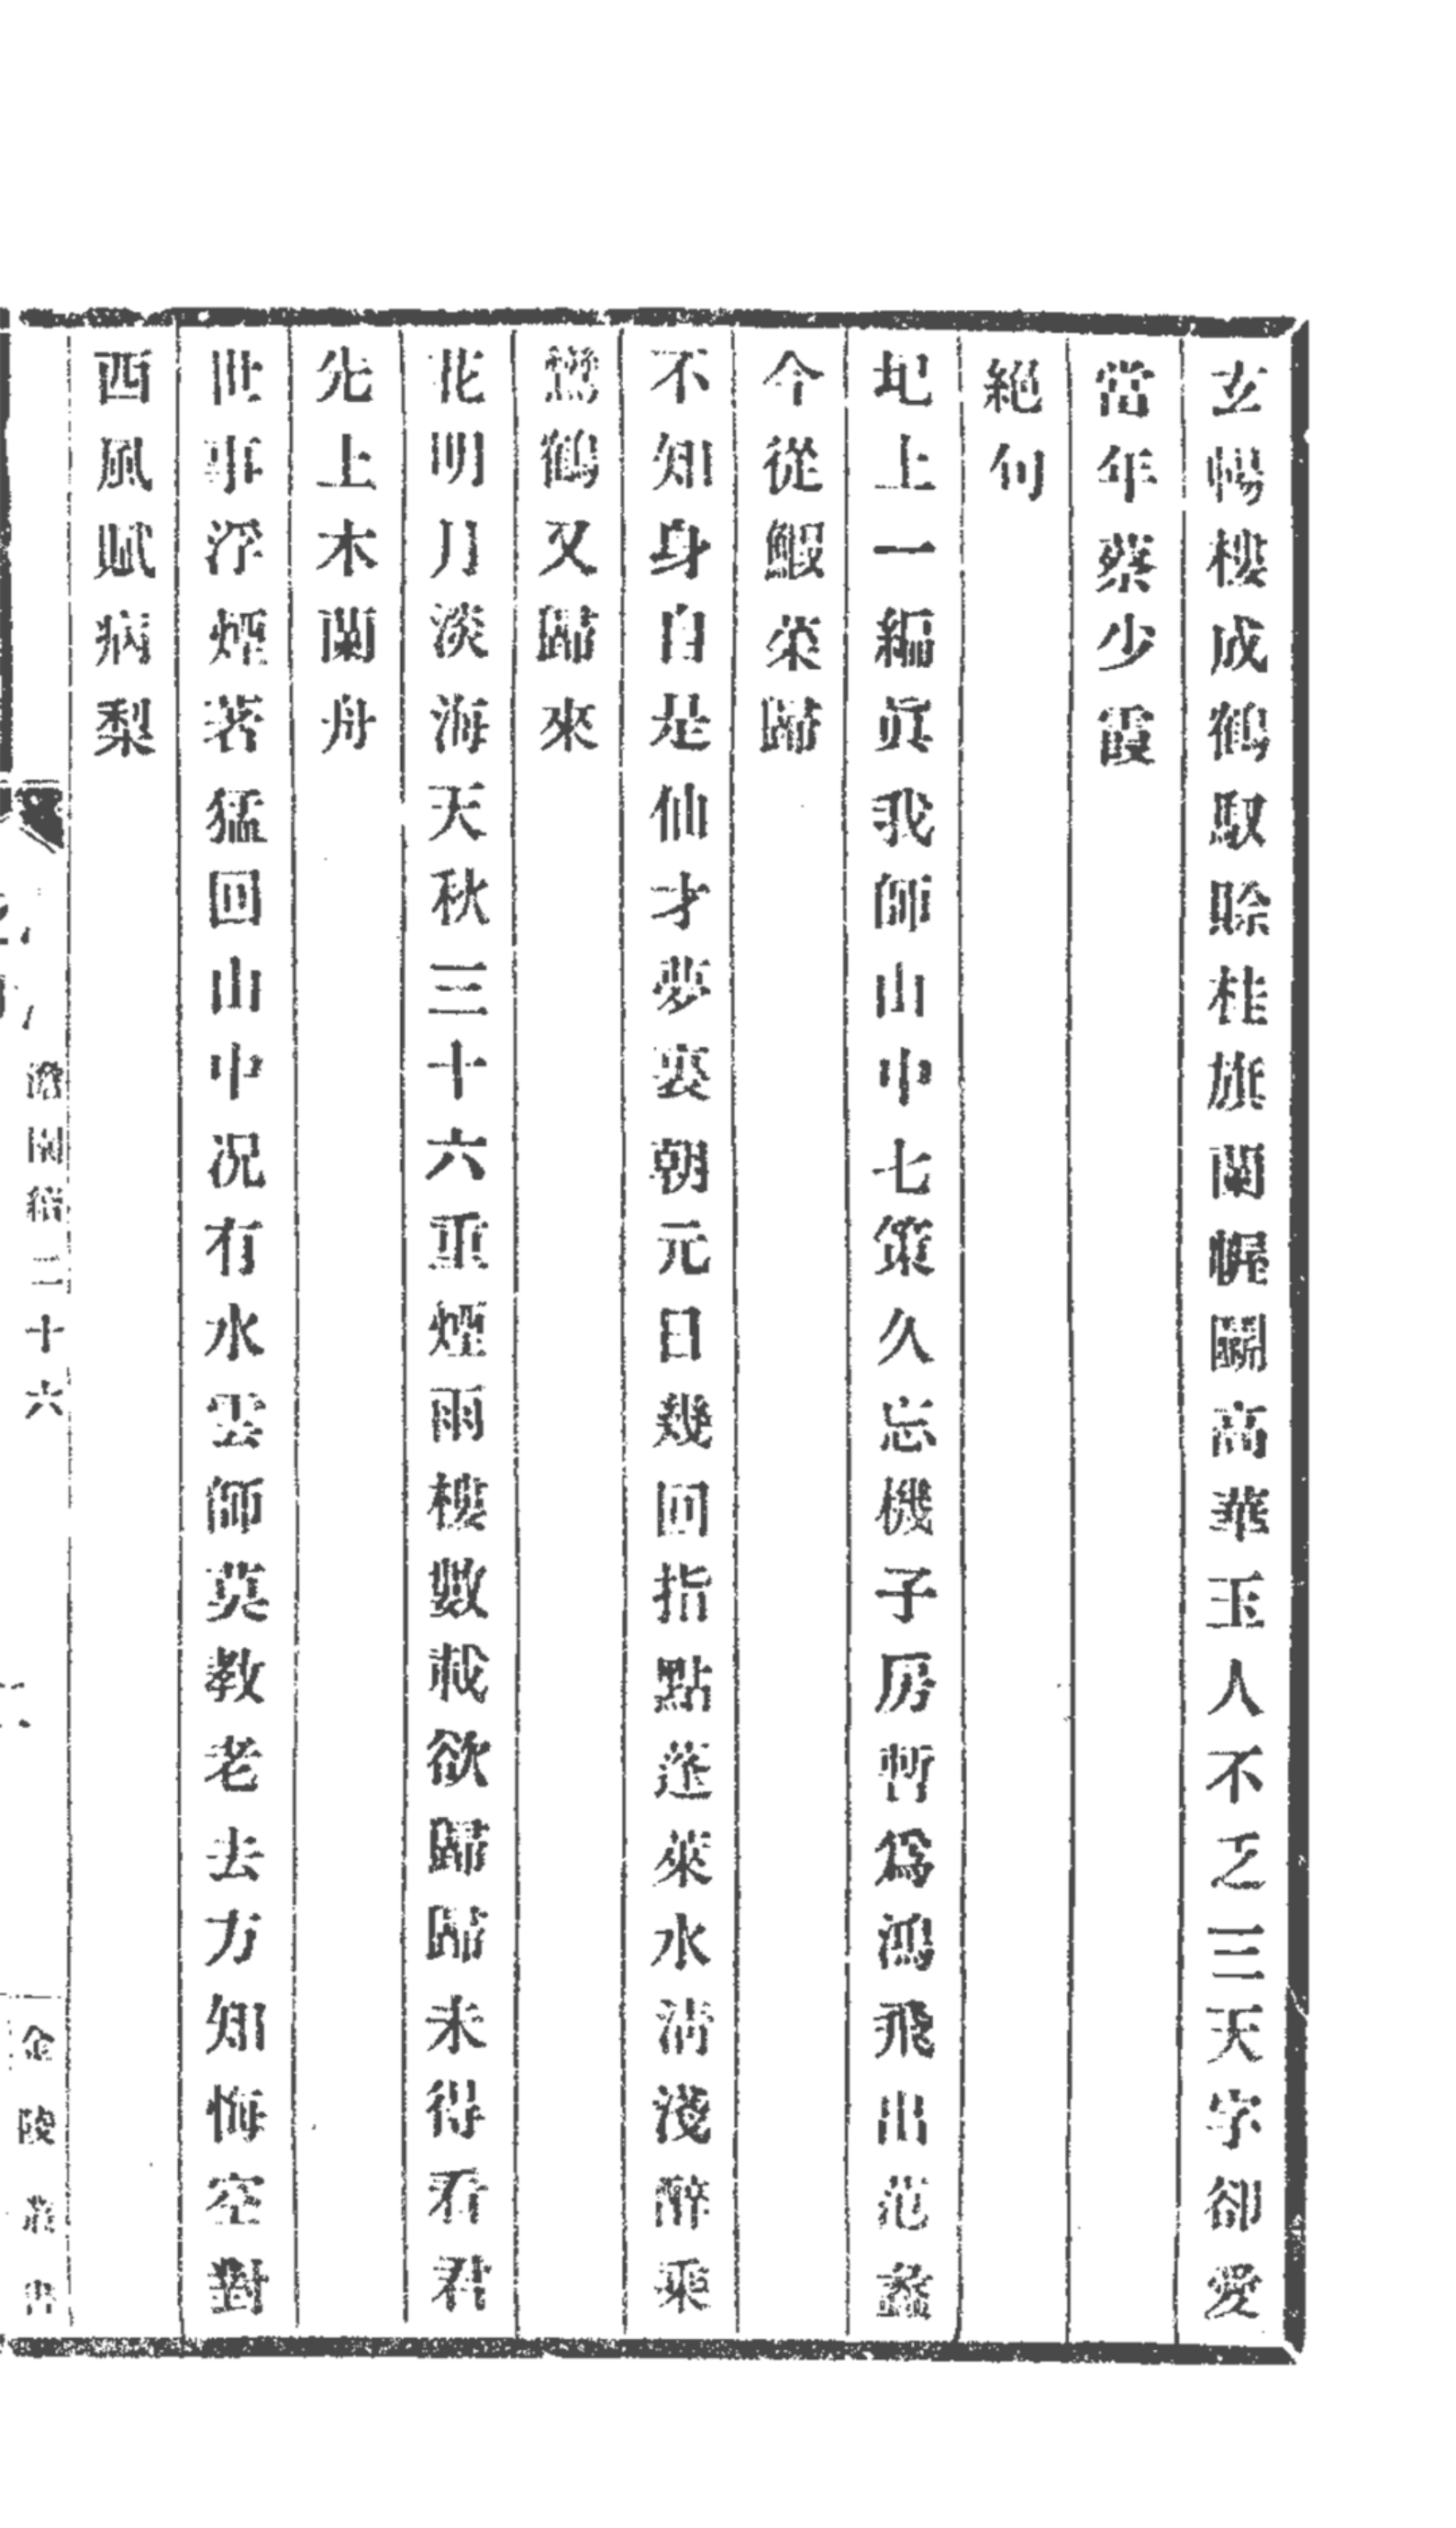 玄暢樓成鶴馭賒桂旗蘭幄鬭高華玉人不乏三天字卻愛
當年蔡少霞
絕句
圯上一編眞我師山中七策久忘機子房暫爲鴻飛出范蠡
今從鰕菜歸
不知身自是仙才夢裏朝元日幾回指點蓬萊水淸淺醉乘
鸞鶴又歸來
花明月淡海天秋三十六重煙雨樓數載欲歸歸未得看君
先上木蘭舟
世事浮煙著猛回山中况有水雲師莫教老去方知悔空對
西風賦病梨
澹園續二十六
金陵叢書